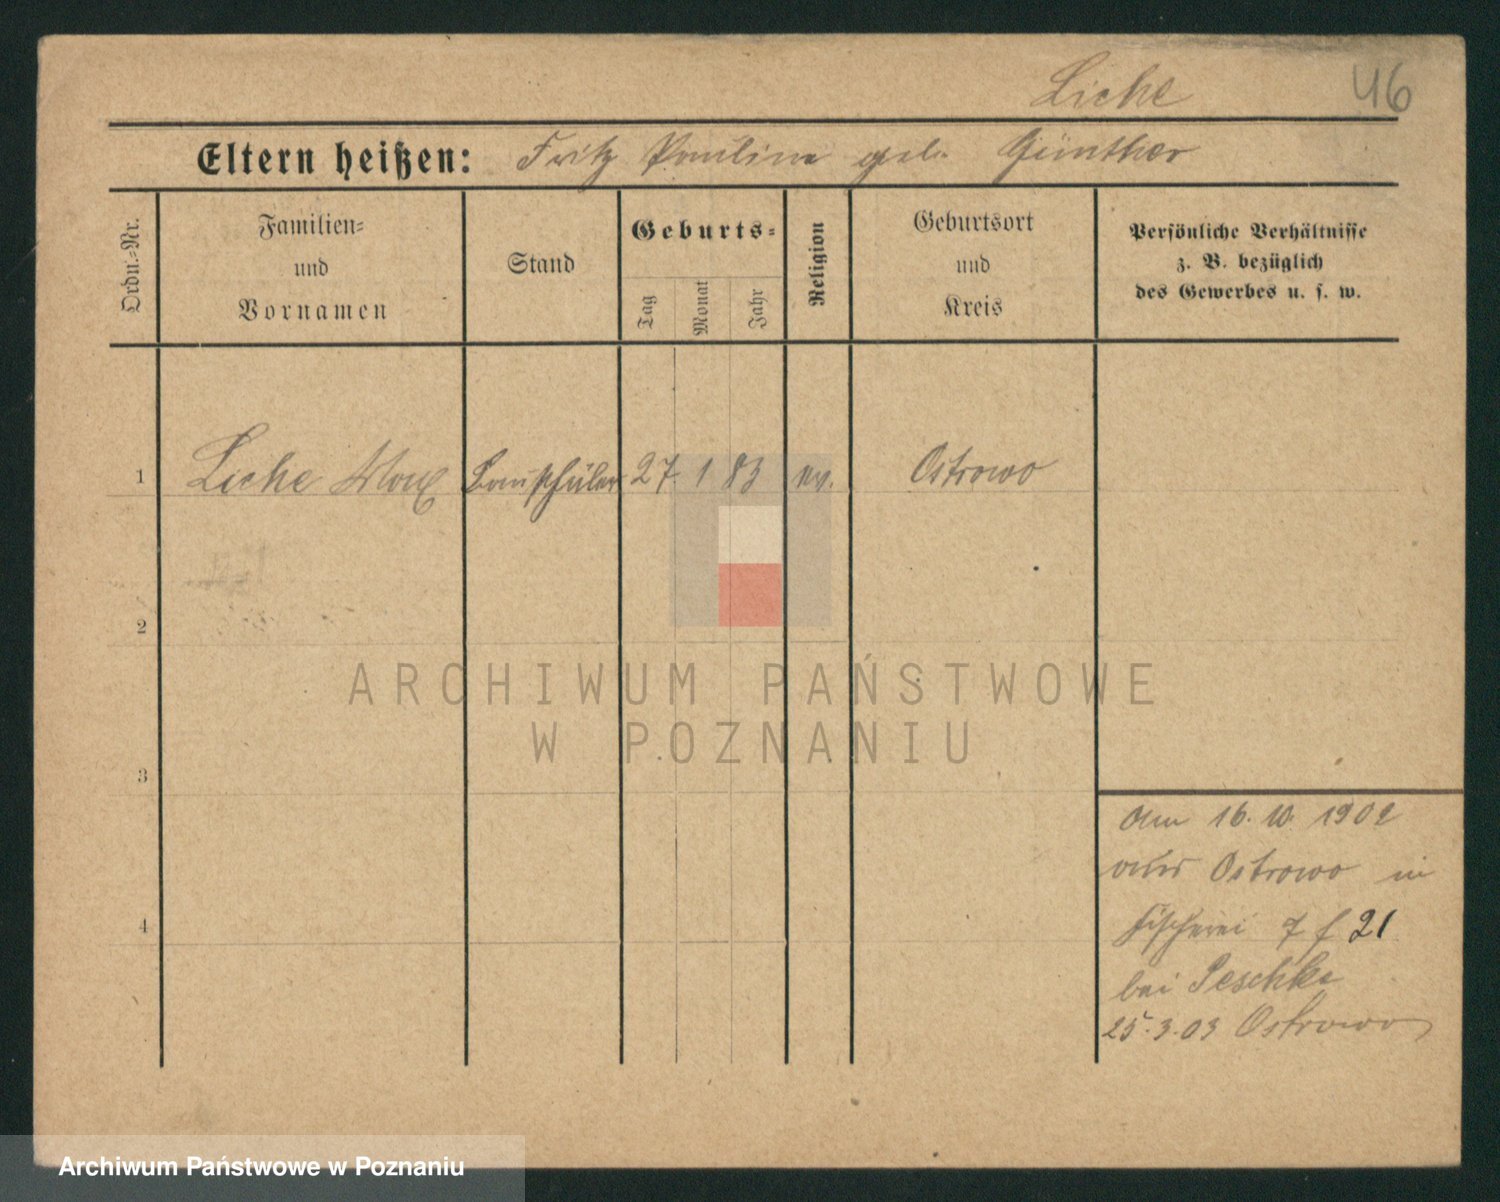 Liche 46
Eltern heißen: Fritz Pauline geb. Günther
Ordn.-Nr.
Familien-
und
Vornamen
Stand
Geburts-
Tag
Monat
Jahr
Religion
Geburtsort
und
Kreis
Persönliche Verhältnisse
z. B. bezüglich
des Gewerbes u. s. w.
1 Liche Max Bauschüler 27. 1 83 ev. Ostrowo
2
3
4
Am 16. 10. 1902
aus Ostrowo in
Fischerei 7 f 21
bei Peschke
25.3.03 Ostrowo
ARCHIWUM PAŃSTWOWE
W POZNANIU
Archiwum Państwowe w Poznaniu